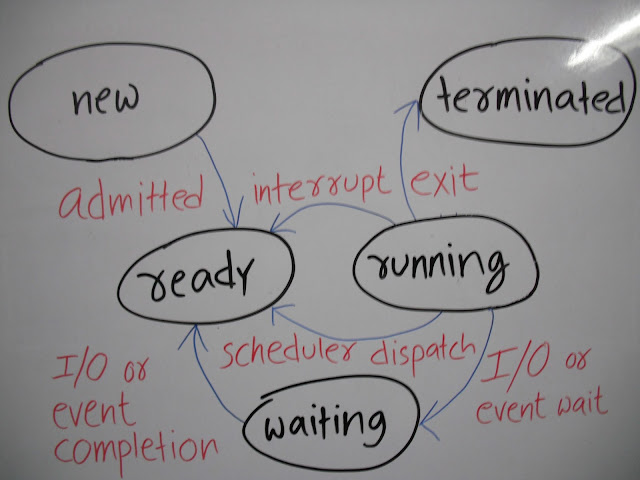 new
terminated
admitted
interrupt
exit
ready
running
scheduler dispatch
I/O or
event
completion
I/O or
event wait
waiting